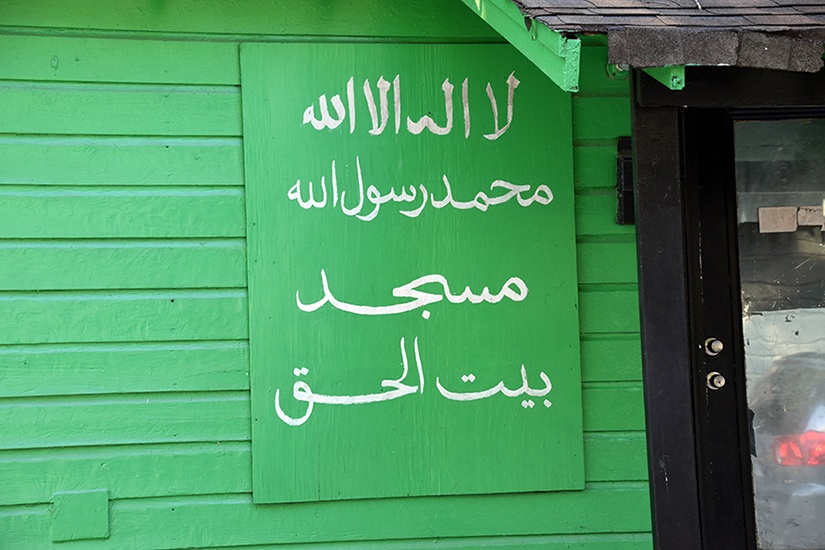 لا اله الا الله
محمد رسول الله
مسجد
بيت الحق